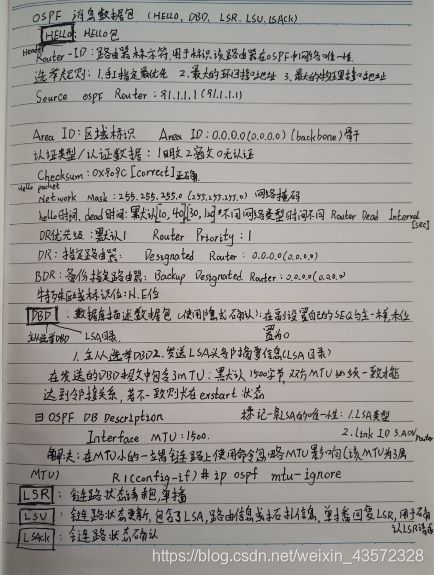 OSPF 消息数据包 (HELLO, DBD, LSR, LSU, LSAck)
HELLO: HELLO包
Header
Router-ID: 路由器标示符,用于标识该路由器在OSPF中网络唯一性.
选举规则: 1.手工指定最优先 2.最大的环回接口地址 3.最大的物理接口地址
Source ospf Router: 91.1.1.1 (91.1.1.1)
Area ID: 区域标识 Area ID: 0.0.0.0 (0.0.0.0) (backbone) 骨干
认证类型/认证数据: 1明文 2密文 0无认证
Checksum: 0x909C [correct] 正确
Hello packet
Network Mask: 255.255.255.0 (255.255.255.0) 网络掩码
hello时间, dead时间: 默认[10, 40] [30, 120] 不同网络类型时间不同 Router Dead Interval
[sec]
DR优先级: 默认1 Router Priority: 1
DR: 指定路由器: Designated Router: 0.0.0.0 (0.0.0.0)
BDR: 备份指定路由器: Backup Designated Router: 0.0.0.0 (0.0.0.0)
特殊区域标识位: N.E位
DBD: 数据库描述数据包 (使用隐式确认): 在部设置自己的SEQ与主一样,末位
主从选举DBD LSA目录. 置为0
1. 主从选举DBD 2. 发送LSA头部摘要信息 (LSA目录)
在发送的DBD报文中包含3MTU: 默认1500字节, 双方MTU必须一致才能
达到邻接关系, 若不一致则卡在exstart状态
日 OSPF DB Description 标记一条LSA的唯一性: 1.LSA类型
Interface MTU: 1500. 2.link ID 3.ADV router
解决: 在MTU小的一边路上使用命令忽略MTU影响 (该MTU为3层
MTU) R1(config-if)# ip ospf mtu-ignore
LSR: 链路状态请求包, 单播
LSU: 链路状态更新, 包含了LSA, 路由信息或拓扑信息, 单播回复LSR, 用于确
认LSR请求
LSAck: 链路状态确认
https://blog.csdn.net/weixin_43572328